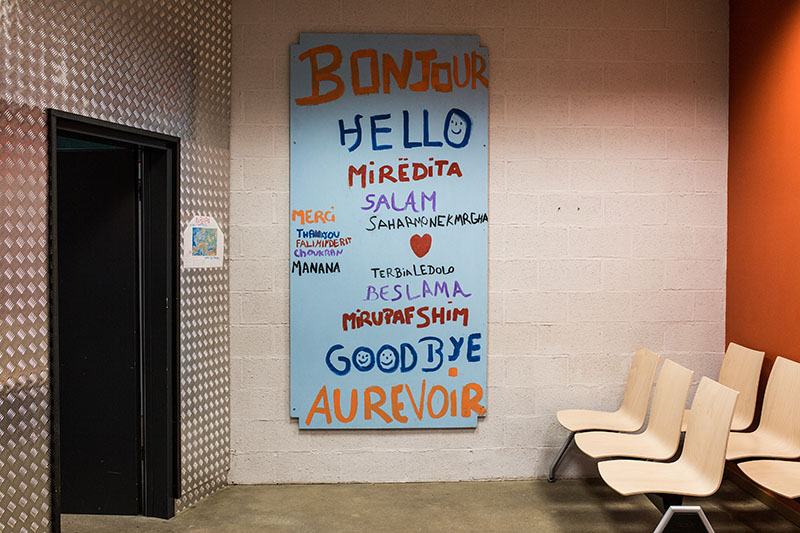 BONJOUR
HELLO
MiRËDiTA
SALAM
SAHARMONEKMRGHA
MERCi
THANKYOU
FALiMiNDERiT
CHOUKRAN
MANANA
TERBiALEDOLO
BESLAMA
MiRUPAFSHiM
GOODBYE
AUREVOIR